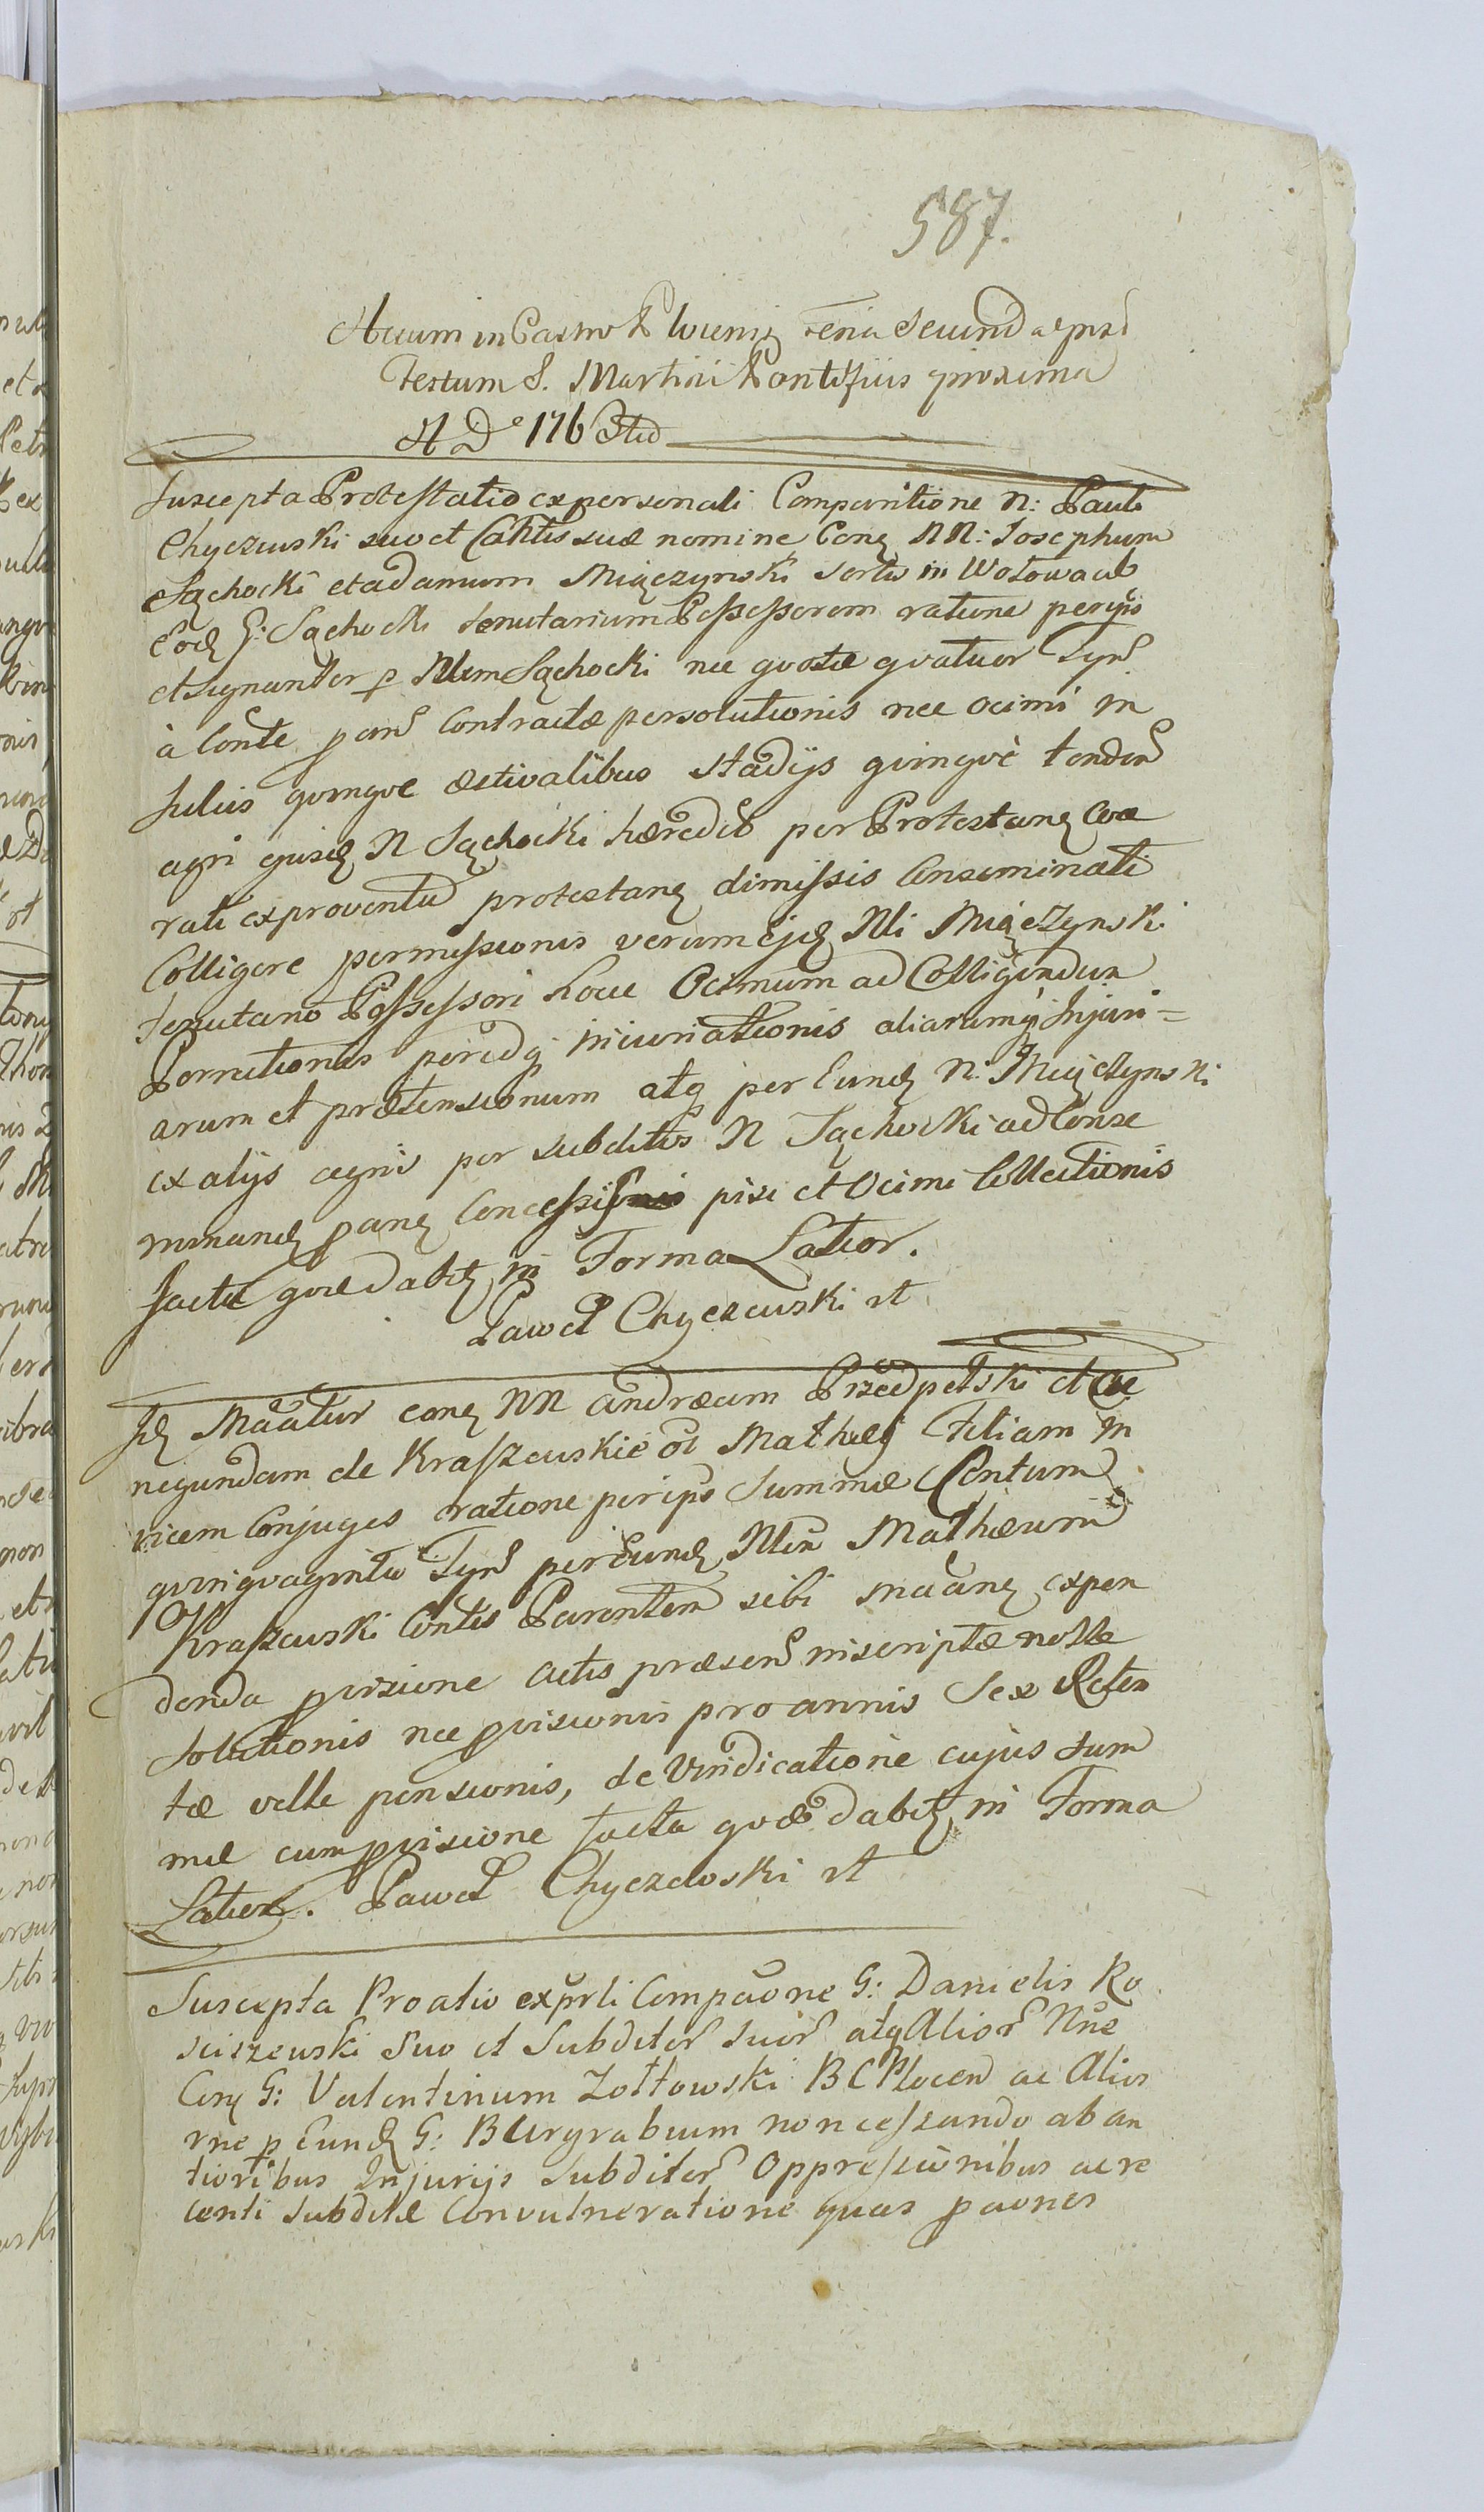 587.
Actum in Castro Plocensi Feria Secunda post
Festum S. Martini Pontificis proxima
A D° 176
Suscepta Protestatio ex personali Comparitione N: Pauli
Chyczewski suo et Cohtis suæ nomine Con NN: Josephum
Sąchocki et adamum Miączynski sortis in Wołowa ab
Eod G: Sąchocki tenutarium Possessorem ratione
et signanter p Nlem Sąchocki nec qvotæ qvatuor Tyn
à Conte p an Contractæ persolutionis nec ocimi in
Sulcis qvinqve æstivalibus stadijs qvinqvè tenden
agri ejusd N Sąchocki hæredit per Protestan
rati ex proventu protestan dimissis Conseminati
Colligere permissionis verum Ejd Nli Miączynski
tenutario Possessori hocce Ocimum ad Colligendum
inuriationis aliarumq Injuri=
arum et prætensionum atq per Eund N: Miączynski
ex alijs agris per subditos N Sąchocki ad Conse
minand pisi et Ocimi Collectionis
facta qvæ dabit in Forma Latior.
Paweł Chyczewski
Id con NN andræam et
negundam de Kraszewskie Mathæi Filiam in
vicem Conjuges ratione Summæ Centum
qvinqvaginta Tyn per Eund Nlem Mathæum
Kraszewski Contis Parentem sibi expen
denda pvisione actis præsen inscriptæ nolle
Solutionis nec pvisionis pro annis Sex Reten
tæ velle pensionis, de Vindicatione cujus sum
mæ cum pvisione facta qvæ dabit in Forma
Latior. Paweł Chyczewski
Suscepta Pro atio ex prli Compaone G: Danielis Ro
sciszewski Suo et Subditor suor atq Alior Nne
Con G: Valentinum Zołtowski BC Plocen ac Alios
rne p Eund G: BUrgrabium non cessando ab an
tioribus Injurijs Subditor Oppressionibus ac re
centi Subditæ Convulneratione quas paones